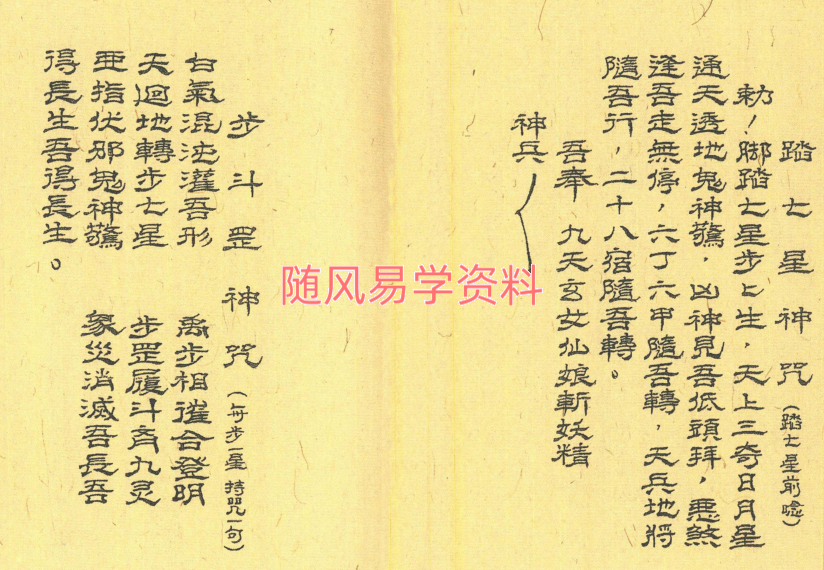 踏七星神咒（踏七星前唸）
勅！脚踏七星步上生，天上三奇日月星
通天透地鬼神驚，凶神見吾低頭拜，悪煞
逢吾走無停，六丁六甲隨吾轉，天兵地將
隨吾行，二十八宿隨吾轉。
吾奉 九天玄女仙娘斬妖精
神兵
步斗罡神咒（每步一星 持咒一句）
白氣混沌灌吾形 禹步相催合登明
天迴地轉步七星 步罡履斗齊九灵
亜指伏邪鬼神驚 象災消滅吾長吾
得長生吾得長生。
随风易学资料